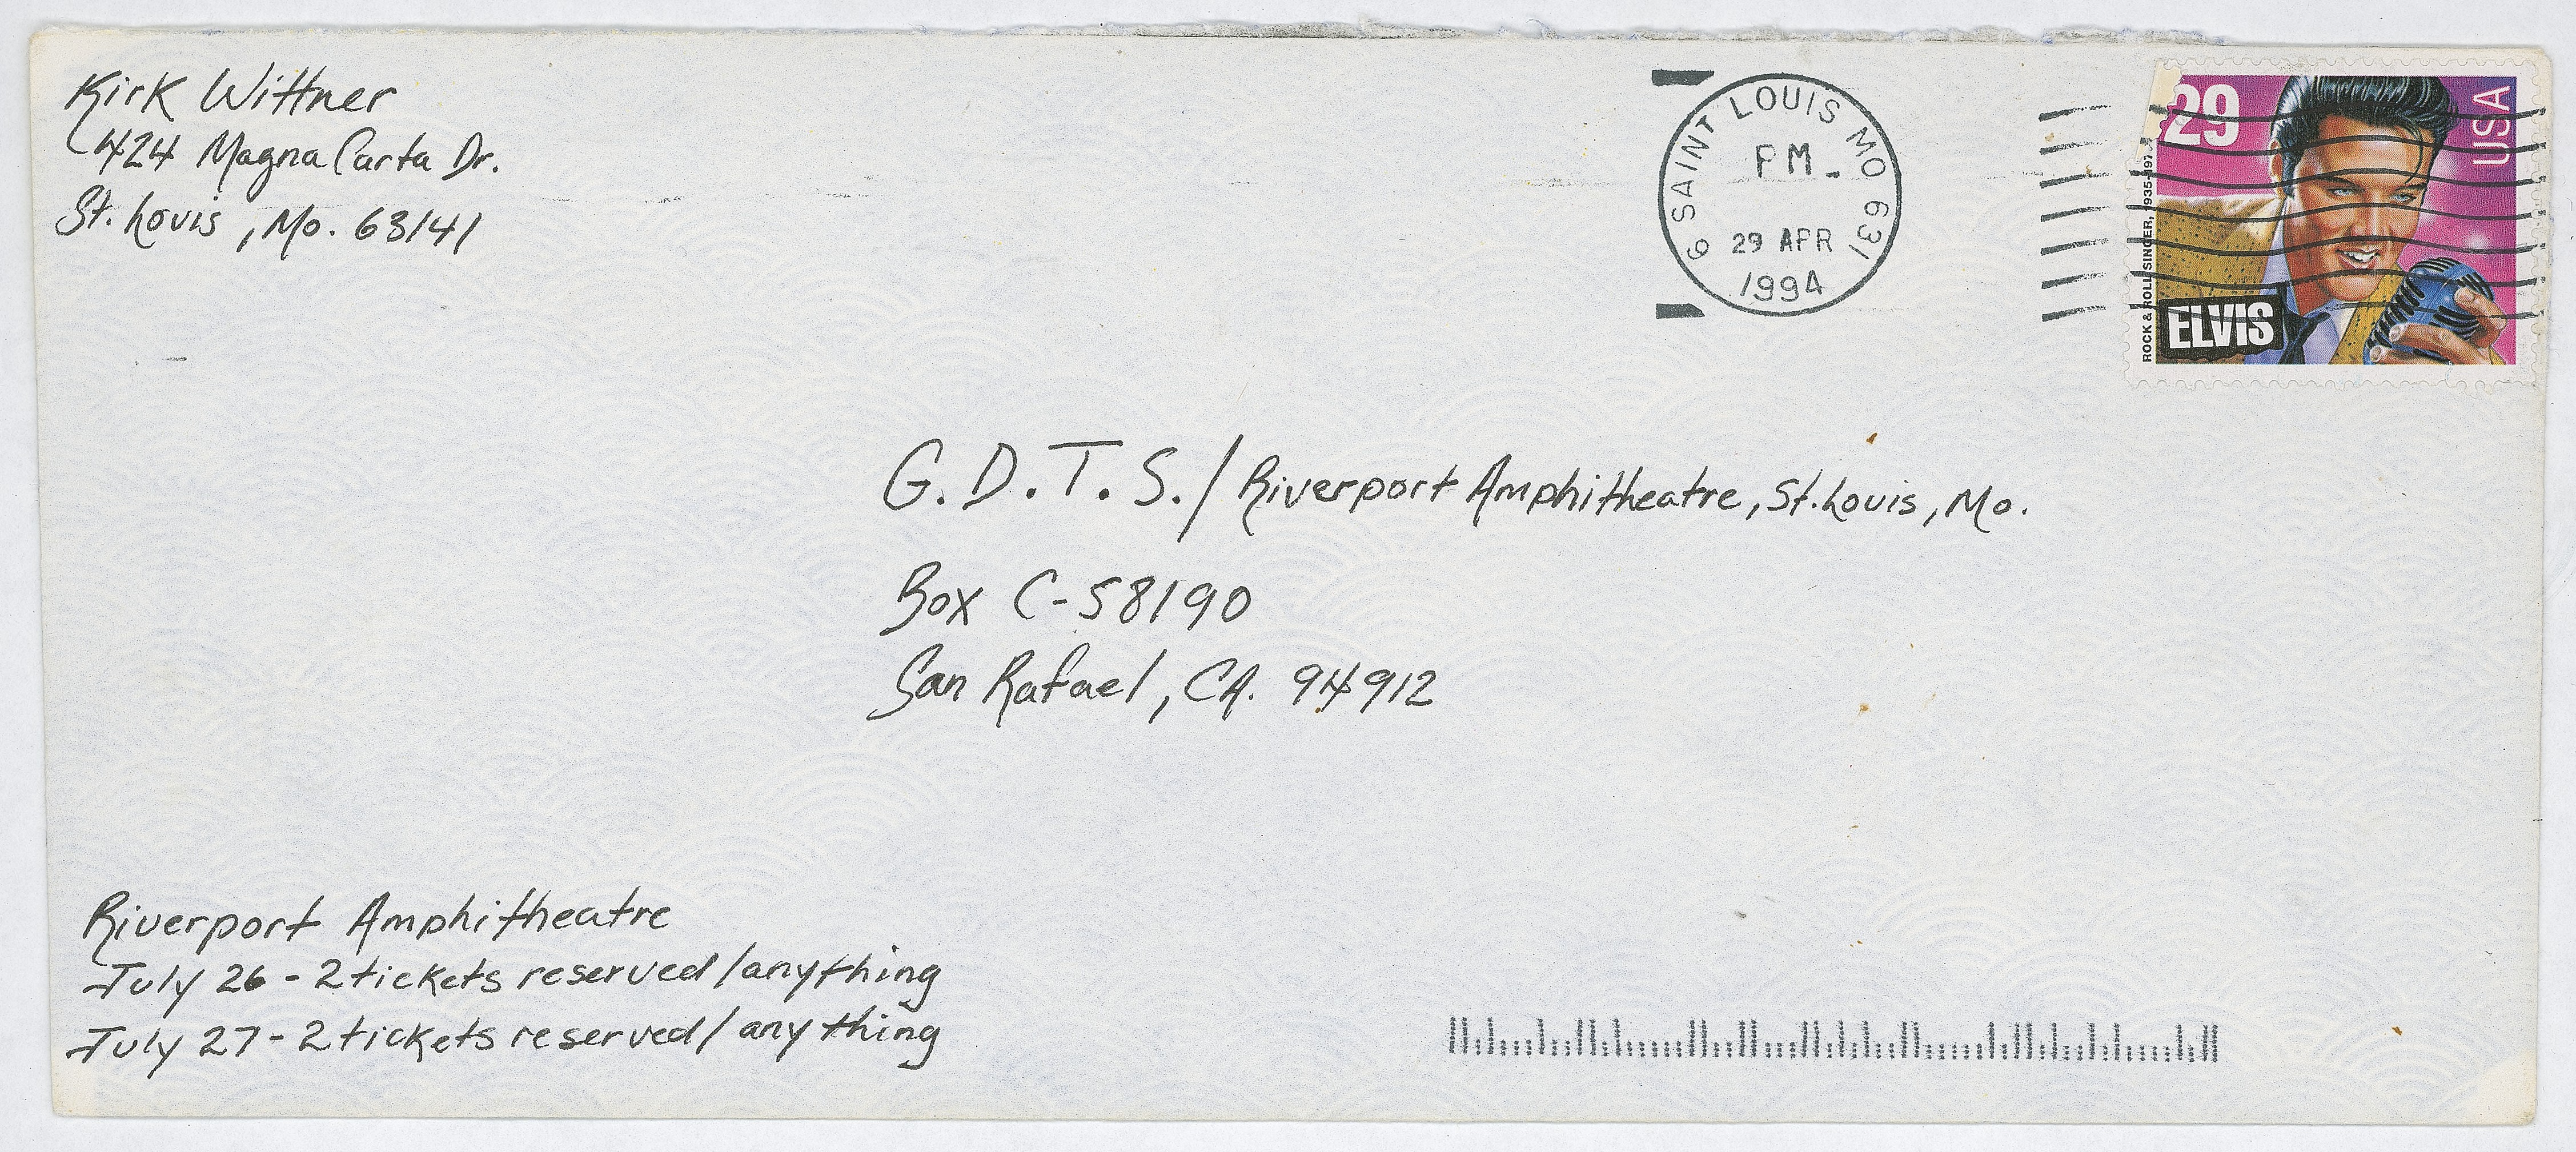 Kirk Wittner
424 Magna Carta Dr.
St. Louis, Mo. 63141
6 SAINT LOUIS MO 631
PM
29 APR
1994
29
USA
ROCK & ROLL SINGER, 1935-197
ELVIS
G. D. T. S. / Riverport Amphitheatre, St. Louis, Mo.
Box C-58190
San Rafael, CA. 94912
Riverport Amphitheatre
July 26 - 2 tickets reserved/anything
July 27 - 2 tickets reserved/anything